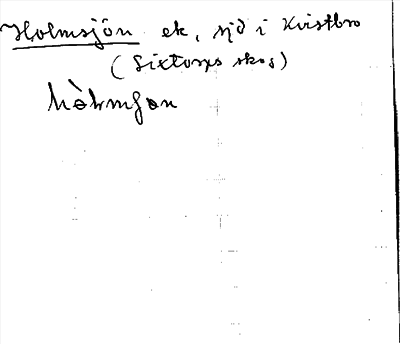 Holmsjön ek, sjö i Kvistbro
(Sixtorps skog)
hòlmʃøn